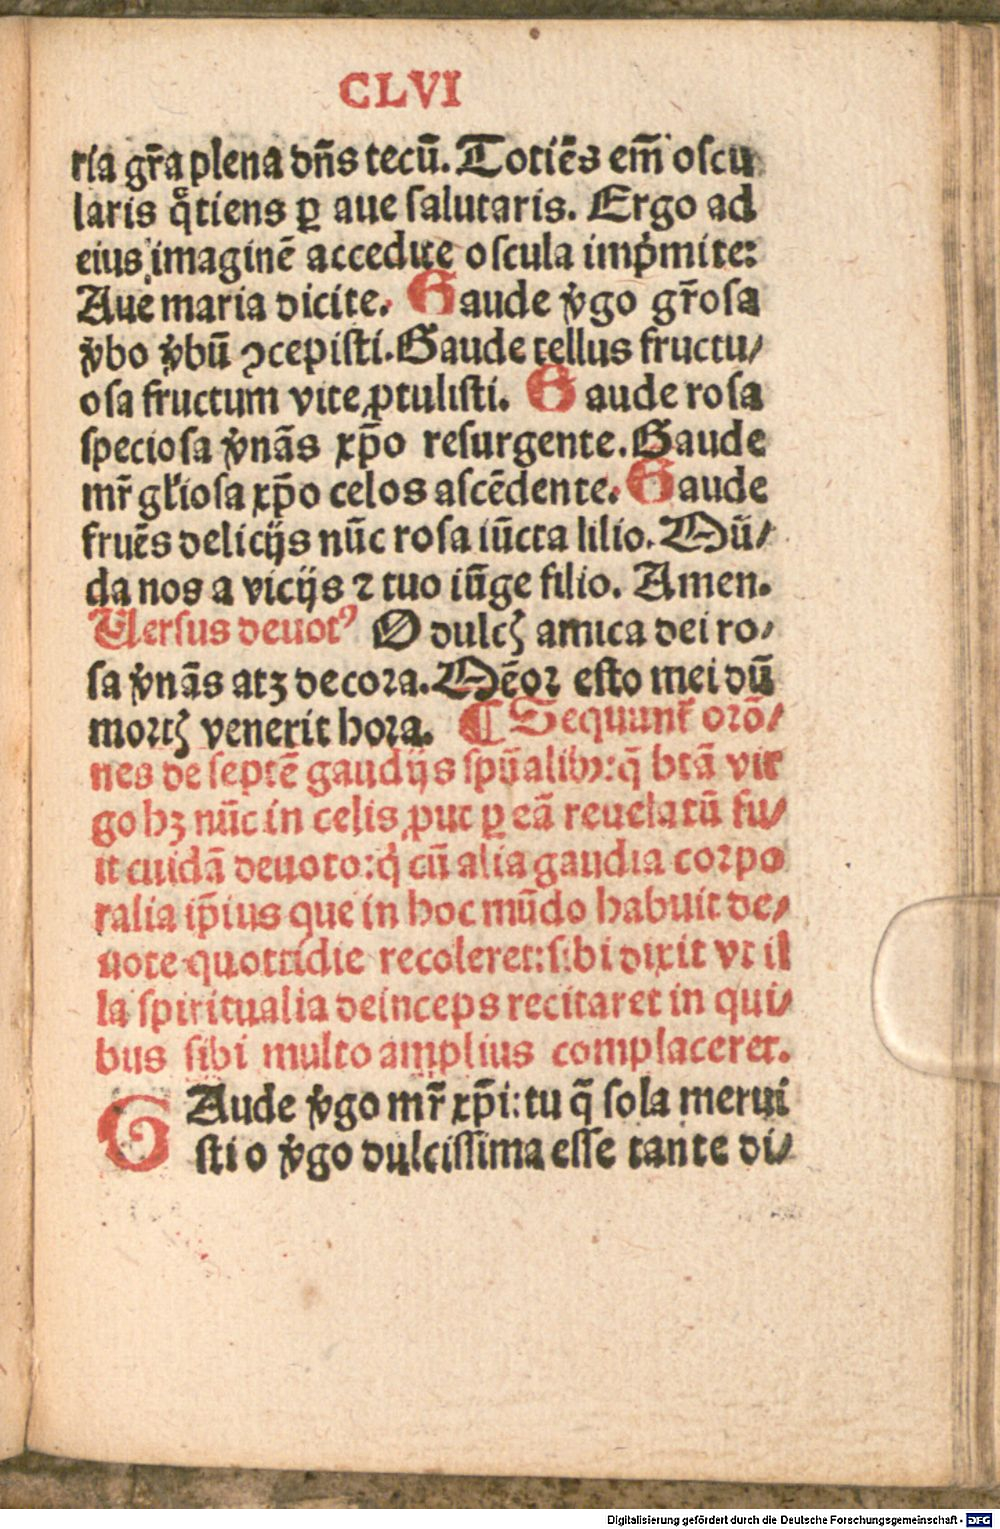 CLVI
ria gr̄a plena dn̄s tecū. Totiēs em̄ oſcu
laris q̊tiens ꝑ aue ſalutaris. Ergo ad
eius imaginē accedite oſcula imp̍mite:
Aue maria dicite. Gaude v̍go gr̄oſa
v̍bo v̍bū ꝯcepiſti. Gaude tellus fructu/
oſa fructum vite ꝓtuliſti. Gaude roſa
ſpecioſa v̍nās xp̄o reſurgente. Gaude
mr̄ gl'ioſa xp̄o celos aſcēdente. Gaude
fruēs delicijs nūc roſa iūcta lilio. Mū/
da nos a vicijs ⁊ tuo iūge filio. Amen.
Verſus deuotꝰ O dulcꝭ amica dei ro/
ſa v̍nās atqꝫ decora. Mēoꝛ eſto mei dū
moꝛtꝭ venerit hoꝛa. ¶ Sequunt᷑ oꝛō/
nes de ſeptē gaudijs ſpūalibꝰ: q̄ btā vir
go hꝫ nūc in celis ꝓut ꝑ eā reuelatū fu/
it cuidā deuoto: q̍ cū alia gaudia coꝛpo
ralia ip̄ius que in hoc mūdo habuit de/
uote quottidie recoleret: ſibi dixit vt il
la ſpiritualia deinceps recitaret in qui/
bus ſibi multo amplius complaceret.
GAude v̍go mr̄ xp̄i: tu q̄ ſola merui
ſti o v̍go dulciſſima eſſe tante di/
Digitalisierung gefördert durch die Deutsche Forschungsgemeinschaft - DFG